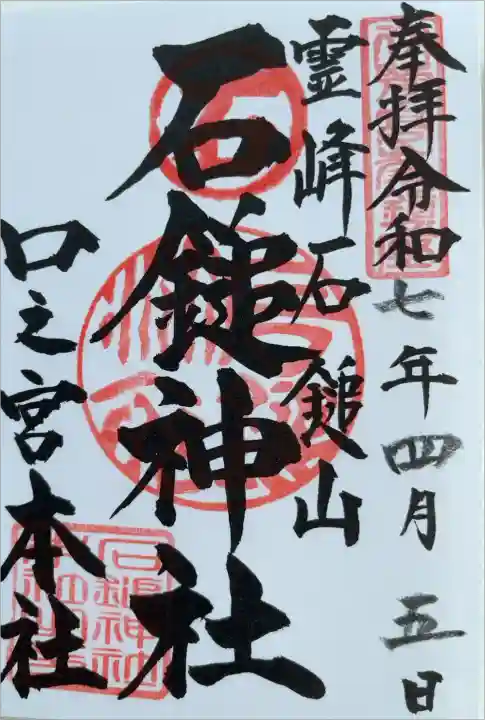 奉拝令和七年四月五日
霊峰石鎚山
石鎚神社
口之宮本社